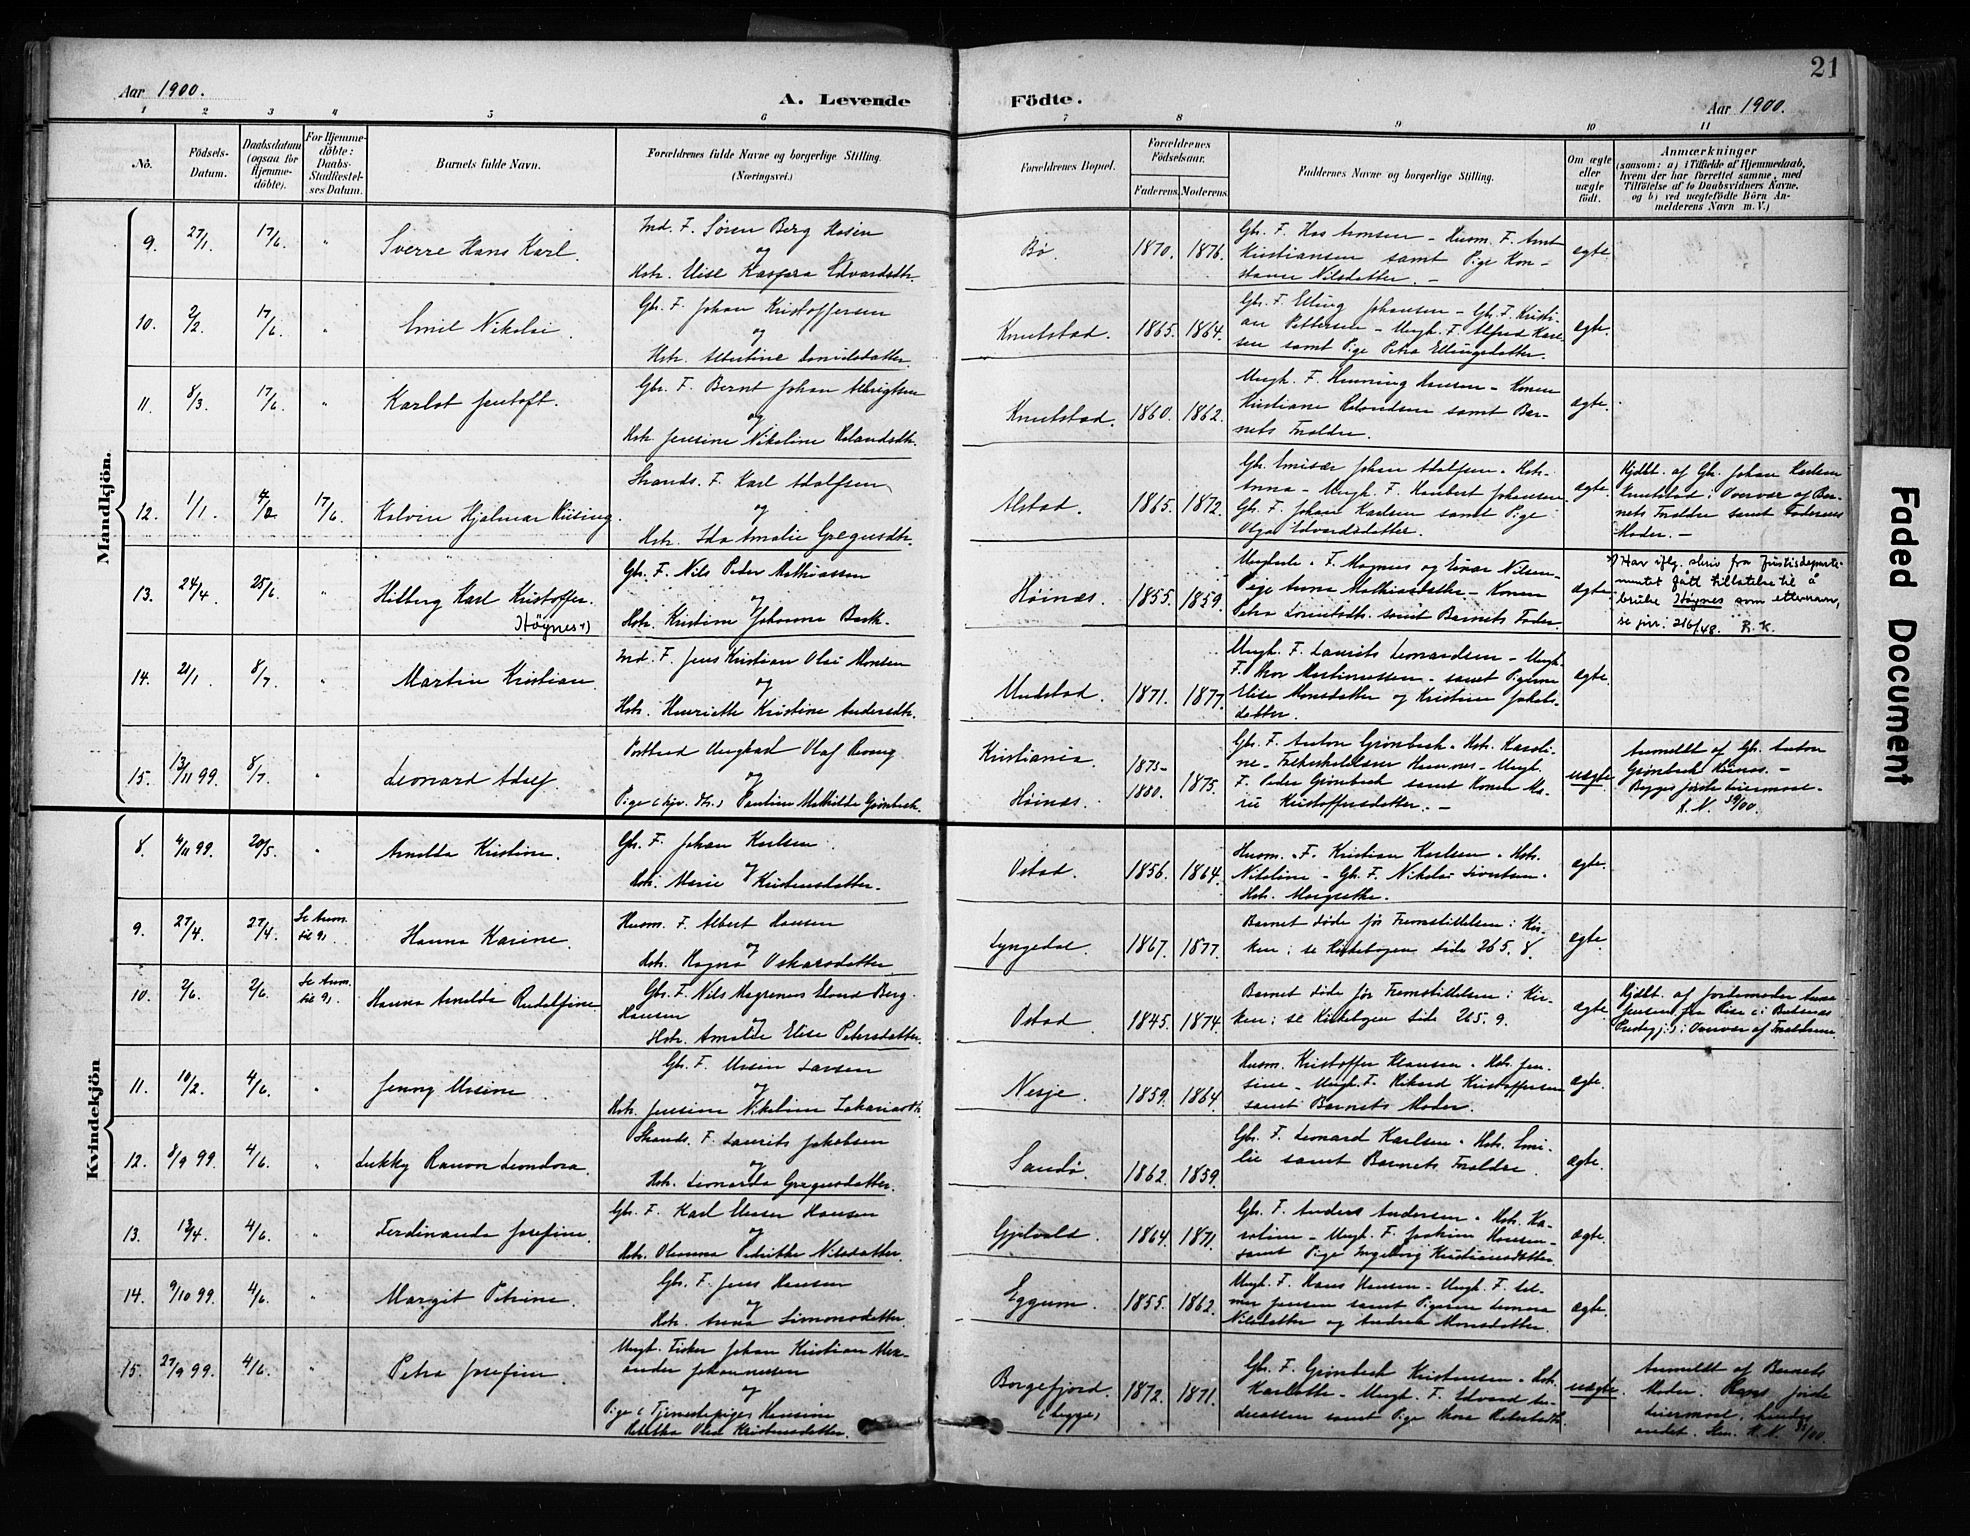 21
Aar 1900.
A. Levende
Födte.
Aar 1900.
1 2 3 4 5 6
7 8 9 10 11
No.
Födsels-Datum.
Daabsdatum (ogsaa for Hjemmedöbte).
For Hjemmedöbte: Daabs-Stadfæstelses Datum.
Barnets fulde Navn.
Forældrenes fulde Navne og borgerlige Stilling.
(Næringsvei.)
Forældrenes Bopæl.
Forældrenes Födselsaar.
Faderens. Moderens.
Faddernes Navne og borgerlige Stilling.
Om ægte eller uægte födt.
Anmærkninger
(saasom: a) i Tilfælde af Hjemmedaab,
hvem der har forrettet samme, med
Tilföielse af to Daabsvidners Navne.
og b) ved uægtefödte Börn An-
melderens Navn m. V.)
Mandkjön.
9. 27/1. 17/6. " Sverre Hans Karl.
Ind. F. Sören Berg Hosen
og
Hstr. Elise Kaspara Edvardsdtr.
Bø. 1870. 1876.
Gbr. F. Hos Aronsen – Husm. F. Arnt
Kristiansen samt Pige Kon-
stanse Nilsdatter. –
ægte.
10. 2/2. 17/6. " Emil Nikolai.
Gbr. F. Johan Kristoffersen
og
Hstr. Albertine Danielsdatter.
Knutstad. 1865. 1864.
Gbr. F. Elling Johansen – Gbr. F. Kristi-
an Pettersen – Ungk. F. Alfred Karl-
sen samt Pige Petra Ellingsdatter.
ægte.
11. 8/3. 17/6. " Karlot Jentoft.
Gbr. F. Bernt Johan Albrigtsen
og
Hstr. Jensine Nikoline Rolandsdtr.
Knutstad. 1860. 1862.
Ungk. F. Henning Hansen – Konen
Kristiane Rolandsen samt Bar-
nets Forældre.
ægte.
12. 1/1. 17/6. Kolvin Hjalmar
Strands. F. Karl Adolfsen
og
Hstr. Ida Amalie Gregusdtr.
Alstad. 1865. 1872.
Gbr. Emisær Johan Adolfsen. Hstr.
Anna – Ungk. F. Haubert Johansen
Gbr. F. Johan Karlsen samt Pige
Olga Edvardsdatter.
ægte.
Hjdbt. af Gbr. Johan Karlsen
Knutstad i Overvær af Bar-
nets Forældre samt Faderens
Moder. –
13. 24/4. 25/6. " Hilberg Karl Kristoffer.
Høgnes +)
Gbr. F. Nils Peder Mathiassen
og
Hstr. Kristine Johanna Bark.
Höinæs. 1855. 1859.
Ungkarle. F. Magnus og Einar Nilsen –
Pige Anna Mathiasdatter – Konen
Petra Lorentsdtr. samt Barnets Fader.
ægte.
+) Har iflg. skriv fra Justisdeparte-
mentet fått tillatelse til å
bruke Høgnes som etternavn,
se jnr. 216/48. R.K.
14. 21/1. 8/7. " Martin Kristian.
Ind. F. Jens Kristian Olai Monsen
og
Hstr. Henriette Kristine Andersdtr.
Undstad. 1871. 1877.
Ungk. F. Laurits Leonardsen – Ungk.
F. Thor Martinussen – samt Pigerne
Elise Monsdatter og Kristine Jakobs-
datter.
ægte.
15. 13/11 99. 8/7. " Leonard Adolf.
og
Pauline Mathilde Grönbech.
Kristiania.
Höinæs.
1875–1880. 1875.
Gbr. F. Anton Grönbech. Hstr. Karoli-
ne – Hannes – Ungk.
F. Peder Grönbech samt Konen Ma-
rie Kristoffersdatter. –
uægte.
Anmeldt af Gbr. Anton
Grönbech Höinæs. –
Begges förste Leiermaal.
K. N. 59/00.
Kvindekjön
8. 4/11 99. 20/5. " Arnelda Kristine.
Gbr. F. Johan Karlsen.
og
Hstr. Marie Kristensdatter.
Ostad. 1856. 1864.
Husm. F. Kristian Karlsen. Hstr.
Nikoline – Gbr. F. Nikolai Sivertsen.
Hstr. Margrethe.
ægte.
9. 27/4. 27/4. Se Anm. til 9, Hanna Karine.
Husm. F. Albert Hansen
og
Hstr. Ragna Oskarsdatter.
Lyngedal. 1867. 1877.
Barnet döde för Fremstillelsen i Kir-
ken; se Kirkebogen Side 265. 8.
ægte.
10. 2/6. 2/6. Se Anm. til 9, Hanna Arnelda Rudolfine
Gbr. F. Nils Magrenus Eluad Berg.
Hansen
og
Hstr. Amalie Elise Petersdatter.
Ostad. 1845. 1874.
Barnet döde för Fremstillelsen i Kir-
ken; se Kirkebogen Side 265. 9.
ægte.
Hjdbt. af Jordemoder Anna
Jensen fra Rise (i Buksnæs
Prestegj.) i Overvær af Forældrene.
11. 10/2. 4/6. " Jenny Ursine.
Gbr. F. Ursin Larsen
og
Hstr. Jensine Nikoline Zakariasdtr.
Nesje. 1859. 1864.
Husm. Kristoffer Klausen. Hstr. Jen-
sine – Ungk. F. Rikard Kristoffersen
samt Barnets Moder.
ægte.
12. 8/9 99. 4/6. " Lukky Ranon Leondora.
Strands. F. Laurits Jakobsen
og
Hstr. Leonarda Gregusdatter.
Sandö. 1862. 1859.
Gbr. F. Leonard Karlsen. Hstr. Emi-
lie samt Barnets Forældre.
ægte.
13. 13/4. 4/6. " Ferdinanda Josefine.
Gbr. F. Karl Unser Hansen
og
Hstr. Oleanna Pedrikke Nilsdatter.
Gjelvold. 1864. 1871.
Gbr. F. Anders Andersen. Hstr. Ka-
roline – Ungk. F. Joakim Hansen –
samt Pige Ingeborg Kristiansdatter.
ægte.
14. 9/10 99. 4/6. " Margit Petrine.
Gbr. F. Jens Hansen
og
Hstr. Anna Simonsdatter.
Eggum. 1855. 1862.
Ungk. F. Hans Hansen – Ungk. F. El-
mer Jensen samt Pigerne Emma
Nilsdatter og Andrea Monsdatter.
ægte.
15. 27/9 99. 4/6. " Petra Josefine.
Ungk. Fisker Johan Kristian Alex-
ander Johannessen
og
Pige (Tjenestepige) Hansine
Rebekka Olea Kristensdatter.
Borgefjord. (begge) 1872. 1871.
Gbr. F. Grönbech Kristensen – Hstr.
Karlotte – Ungk. F. Edvard An-
dreassen samt Pige
uægte.
Anmeldt af Barnets
Moder. Hans förste
Leiermaal, hendes
andet. K. N. /00.
Faded Document